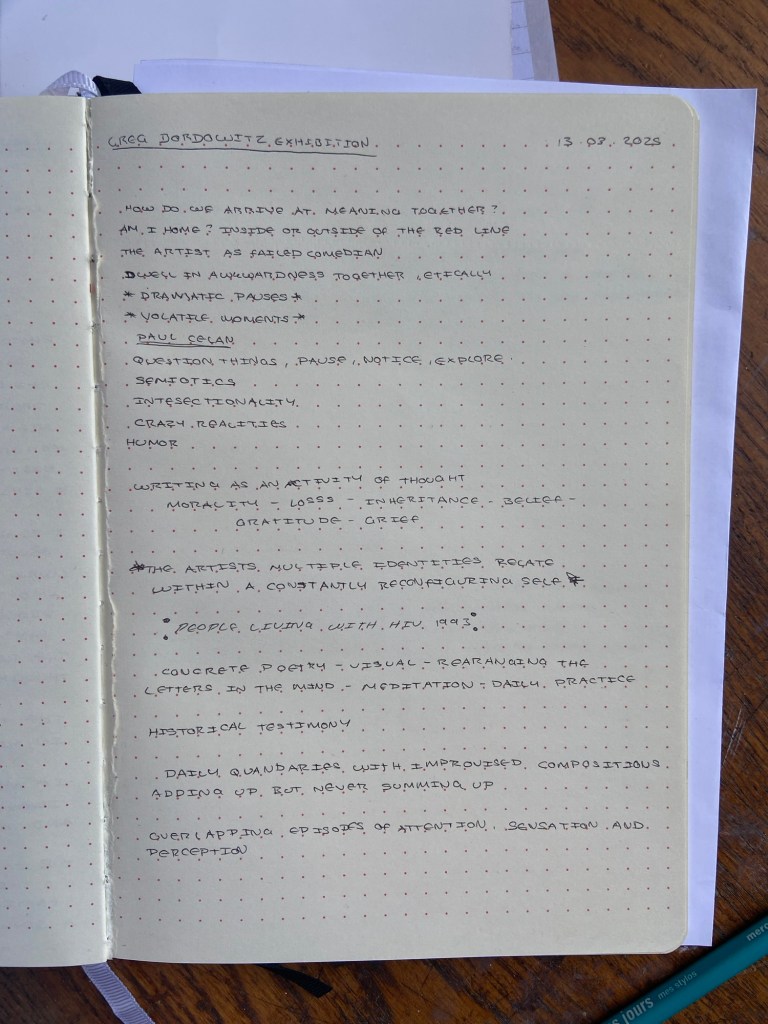 GREG DORDOWITZ EXHIBITION 13 08 2025
HOW DO WE ARRIVE AT MEANING TOGETHER?
AM I HOME? INSIDE OR OUTSIDE OF THE RED LINE
THE ARTIST AS FAILED COMEDIAN
DWELL IN AWKWARDNESS TOGETHER, ETICALLY
* DRAMATIC PAUSES *
* VOLATILE MOMENTS *
PAUL CELAN
QUESTION THINGS, PAUSE, NOTICE, EXPLORE
SEMIOTICS
INTESECTIONALITY
CRAZY REALITIES
HUMOR
WRITING AS AN ACTIVITY OF THOUGHT
MORALITY - LOSSS - INHERITANCE - BELIEF -
GRATITUDE - GRIEF
*THE ARTISTS MULTIPLE IDENTITIES RELATE
WITHIN A CONSTANTLY RECONFIGURING SELF *
: PEOPLE LIVING WITH HIV 1993 :
CONCRETE POETRY - VISUAL - REARANGING THE
LETTERS IN THE MIND - MEDITATION - DAILY PRACTICE
HISTORICAL TESTIMONY
DAILY QUANDARIES WITH IMPROVISED COMPOSITIONS
ADDING UP BUT NEVER SUMMING UP
OVERLAPPING EPISODES OF ATTENTION, SENSATION AND
PERCEPTION
jours mes stylos